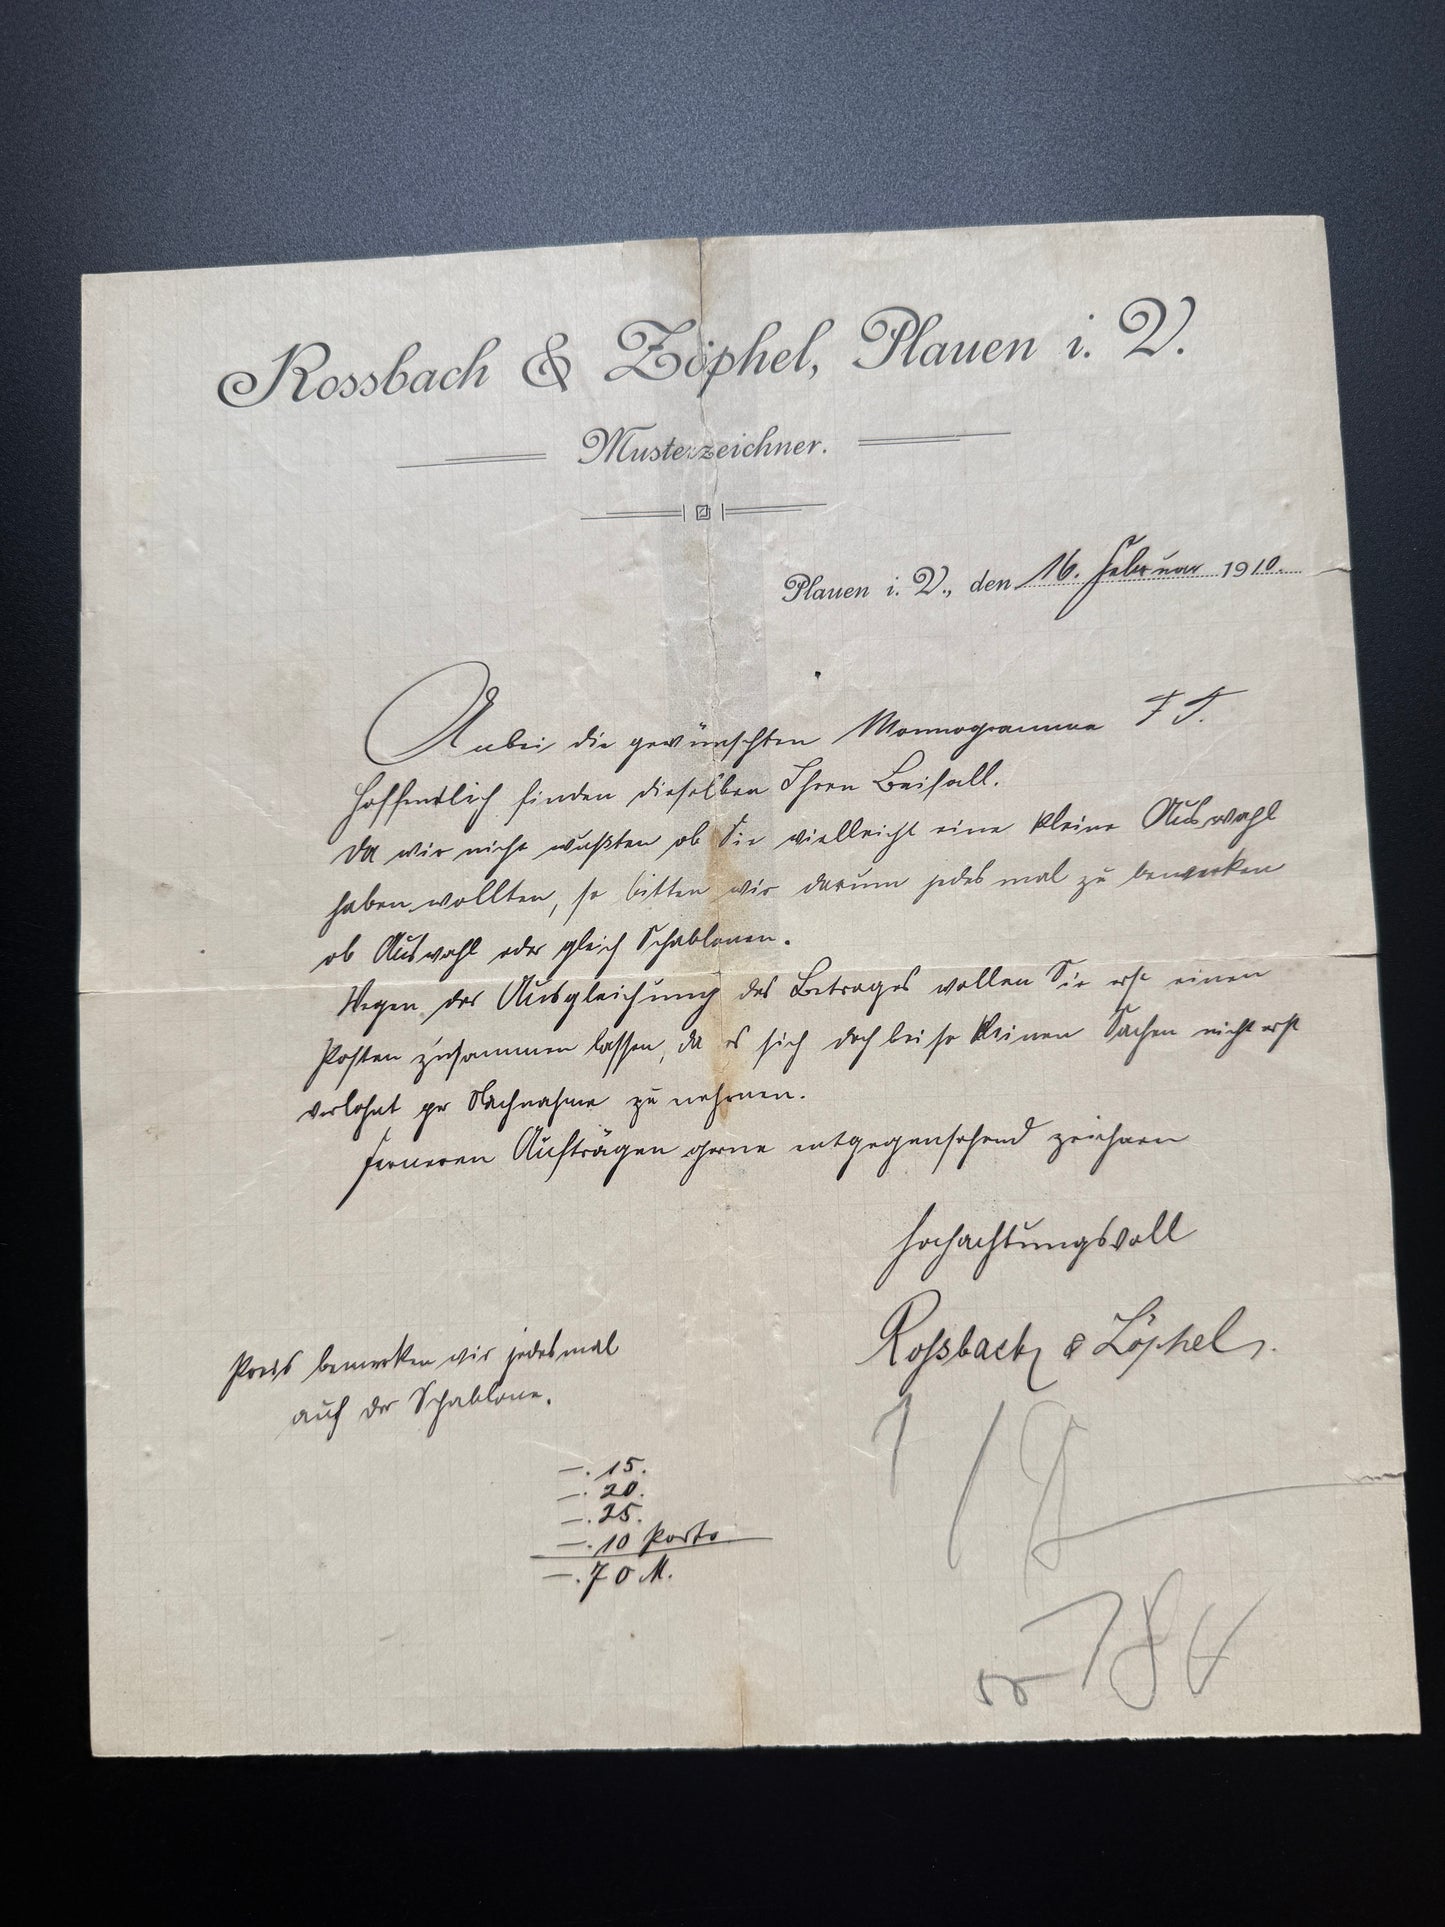 Rossbach & Zöphel, Plauen i. V.
Musterzeichner.
Plauen i. V., den 16. Februar 1910.
Anbei die gewünschten Monnogramme F T.
Hoffentlich finden dieselben Ihren Beifall.
Da wir nicht wußten ob Sie vielleicht eine kleine Auswahl
haben wollten, so bitten wir darum jedesmal zu bemerken
ob Auswahl oder gleich Schablonen.
Wegen der Ausgleichung des Betrages wollen Sie erst einen
Posten zusammen lassen, da es sich doch bei so kleinen Sachen nicht erst
verlohnt per Nachnahme zu nehmen.
Ferneren Aufträgen gerne entgegensehend zeichnen
Hochachtungsvoll
Rossbach & Zöphel.
Preis bemerken wir jedesmal
auf der Schablone.
—. 15.
—. 20.
—. 25.
—. 10 Porto
—. 70 M.